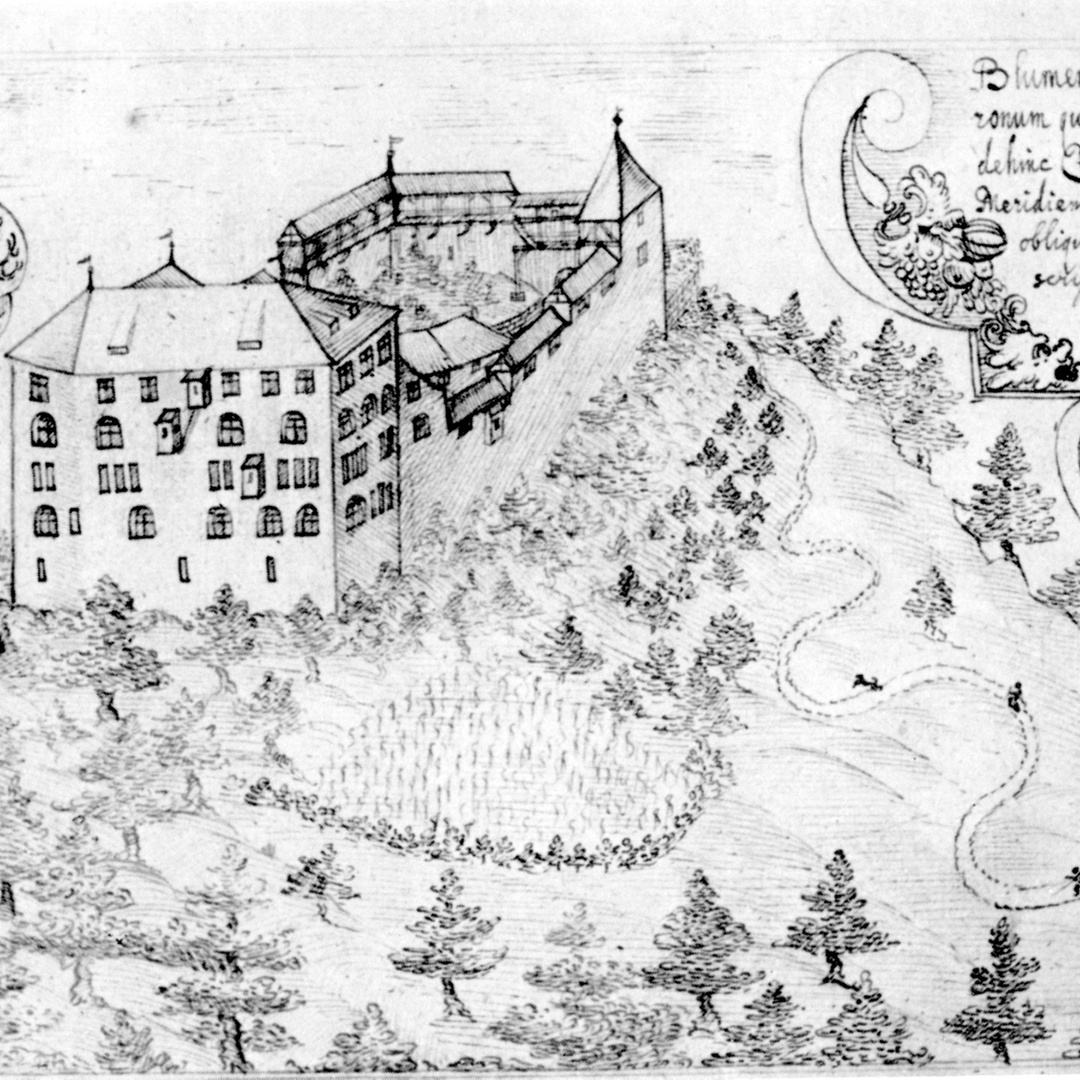 Blumen
ronum qu
dehinc
Meridiem
obliqu